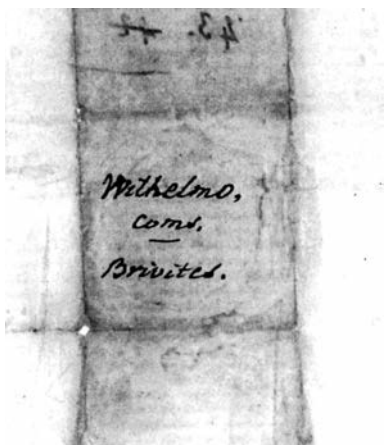 43.
Wilhelmo,
Coms.
Brivites.